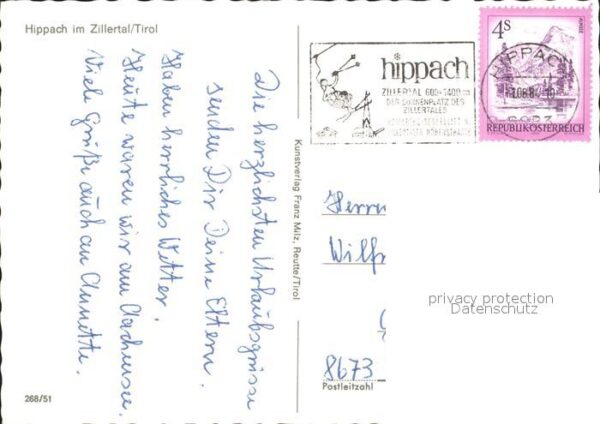 Hippach im Zillertal/Tirol
Die herzlichsten Urlaubsgrüsse
senden Dir Deine Eltern.
Haben herrliches Wetter.
Heute waren wir am Aachensee.
Viele Grüße auch an Annette.
268/51
Kunstverlag Franz Milz, Reutte/Tirol
hippach
ZILLERTAL 600-1400m
DER SONNENPLATZ DES
ZILLERTALES
4S
REPUBLIK ÖSTERREICH
HIPPACH
6283
Herrn
Wilf
8673
Postleitzahl
privacy protection
Datenschutz